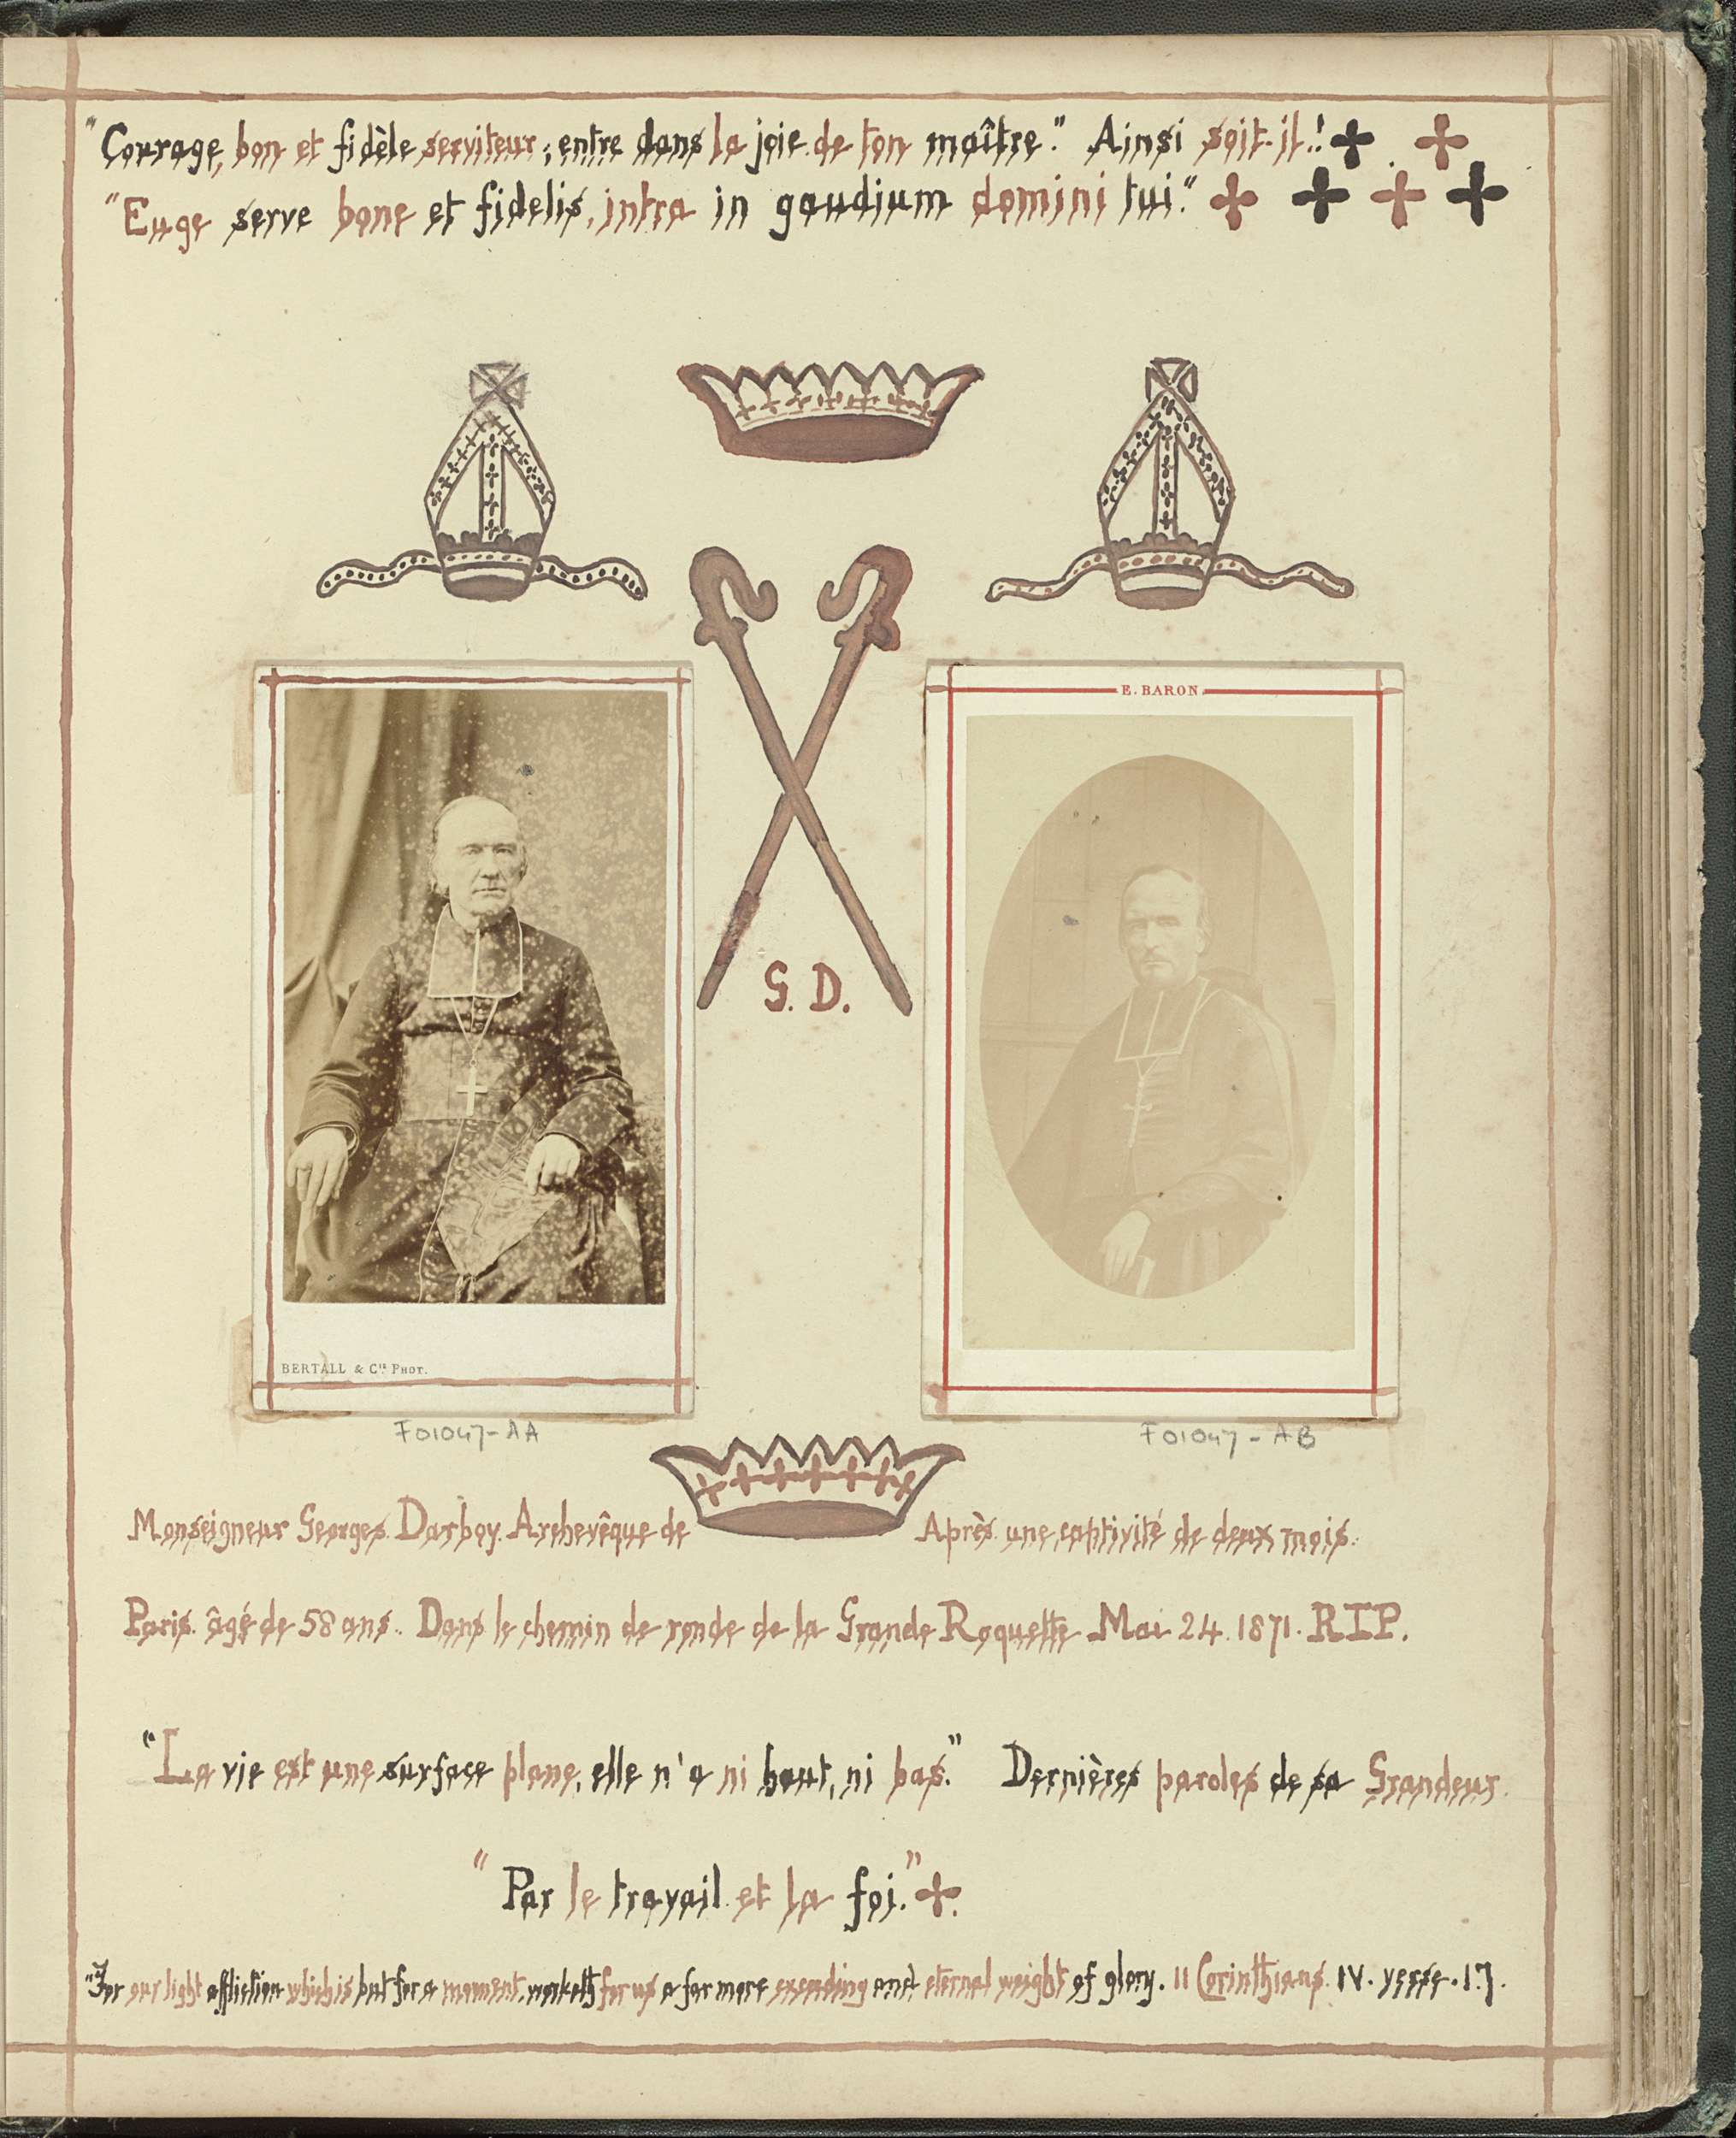 "Courage, bon et fidèle serviteur; entre dans la joie de ton maître." Ainsi soit-il.!
"Euge serve bone et fidelis, intra in gaudium domini tui."
E. BARON
S. D.
BERTALL & Cie PHOT.
F01047-AA
F01047-AB
Monseigneur Georges Darboy. Archevêque de Après une captivité de deux mois.
Paris. âgé de 58 ans.. Dans le chemin de ronde de la Grande Roquette Mai 24. 1871. RIP.
"La vie est une surface plane, elle n'a ni haut, ni bas." Dernières paroles de sa Grandeur.
"Par le travail et la foi."
"For our light affliction which is but for a moment, worketh for us a far more exceeding and eternal weight of glory. II Corinthians. IV. verse. 17.